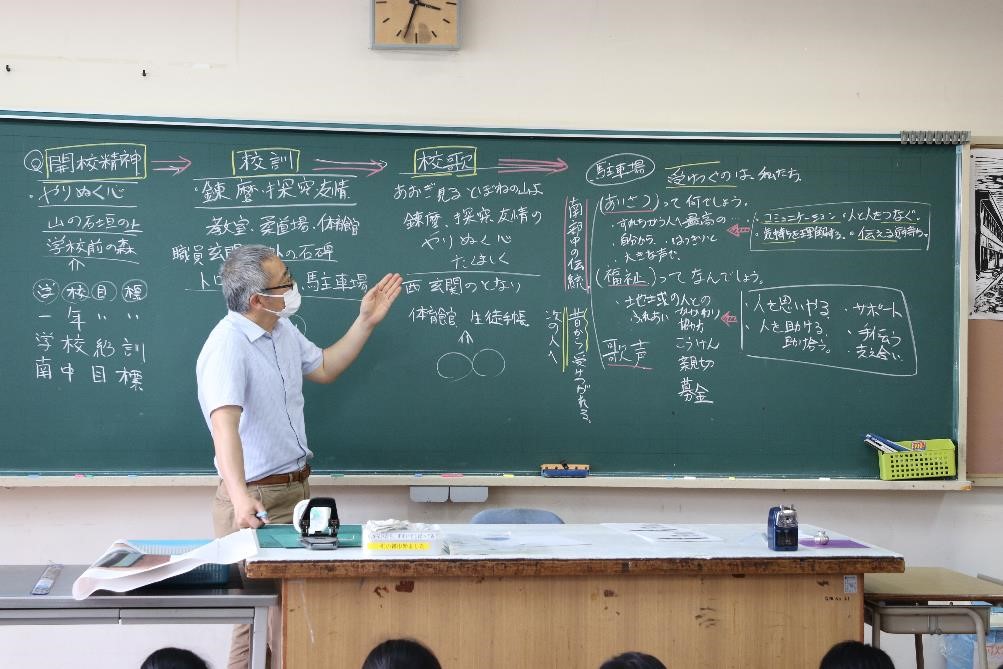 Q 開校精神
やりぬく心
山の石垣の上
学校前の森
学校目標
一年〃〃
学校総訓
南中目標
校訓
・錬磨・探究・友情
教室・柔道場・体育館
職員玄関 外の石碑
駐車場
校歌
あおぎ見る とぼねの山よ
錬磨、探究、友情の
やりぬく心
たましく
西玄関のとなり
体育館 生徒手帳
駐車場
受けつぐのは、私たち
南部中の伝統
昔から受けつがれる。
次の人へ
(あいさつ)って何でしょう。
・すれちがう人へ最高の…
・自分から、はっきりと
・大きな声で、
・コミュニケーション・人と人をつなぐ。
・気持ちを理解する。・伝える気持ち。
(福祉)って なんでしょう。
・土地土地の人との
ふれあい かかわり
協力
こうけん
親切
募金
歌声
・人を思いやる
・人を助ける、
助け合う。
・サポート
・手伝う
・支え合い